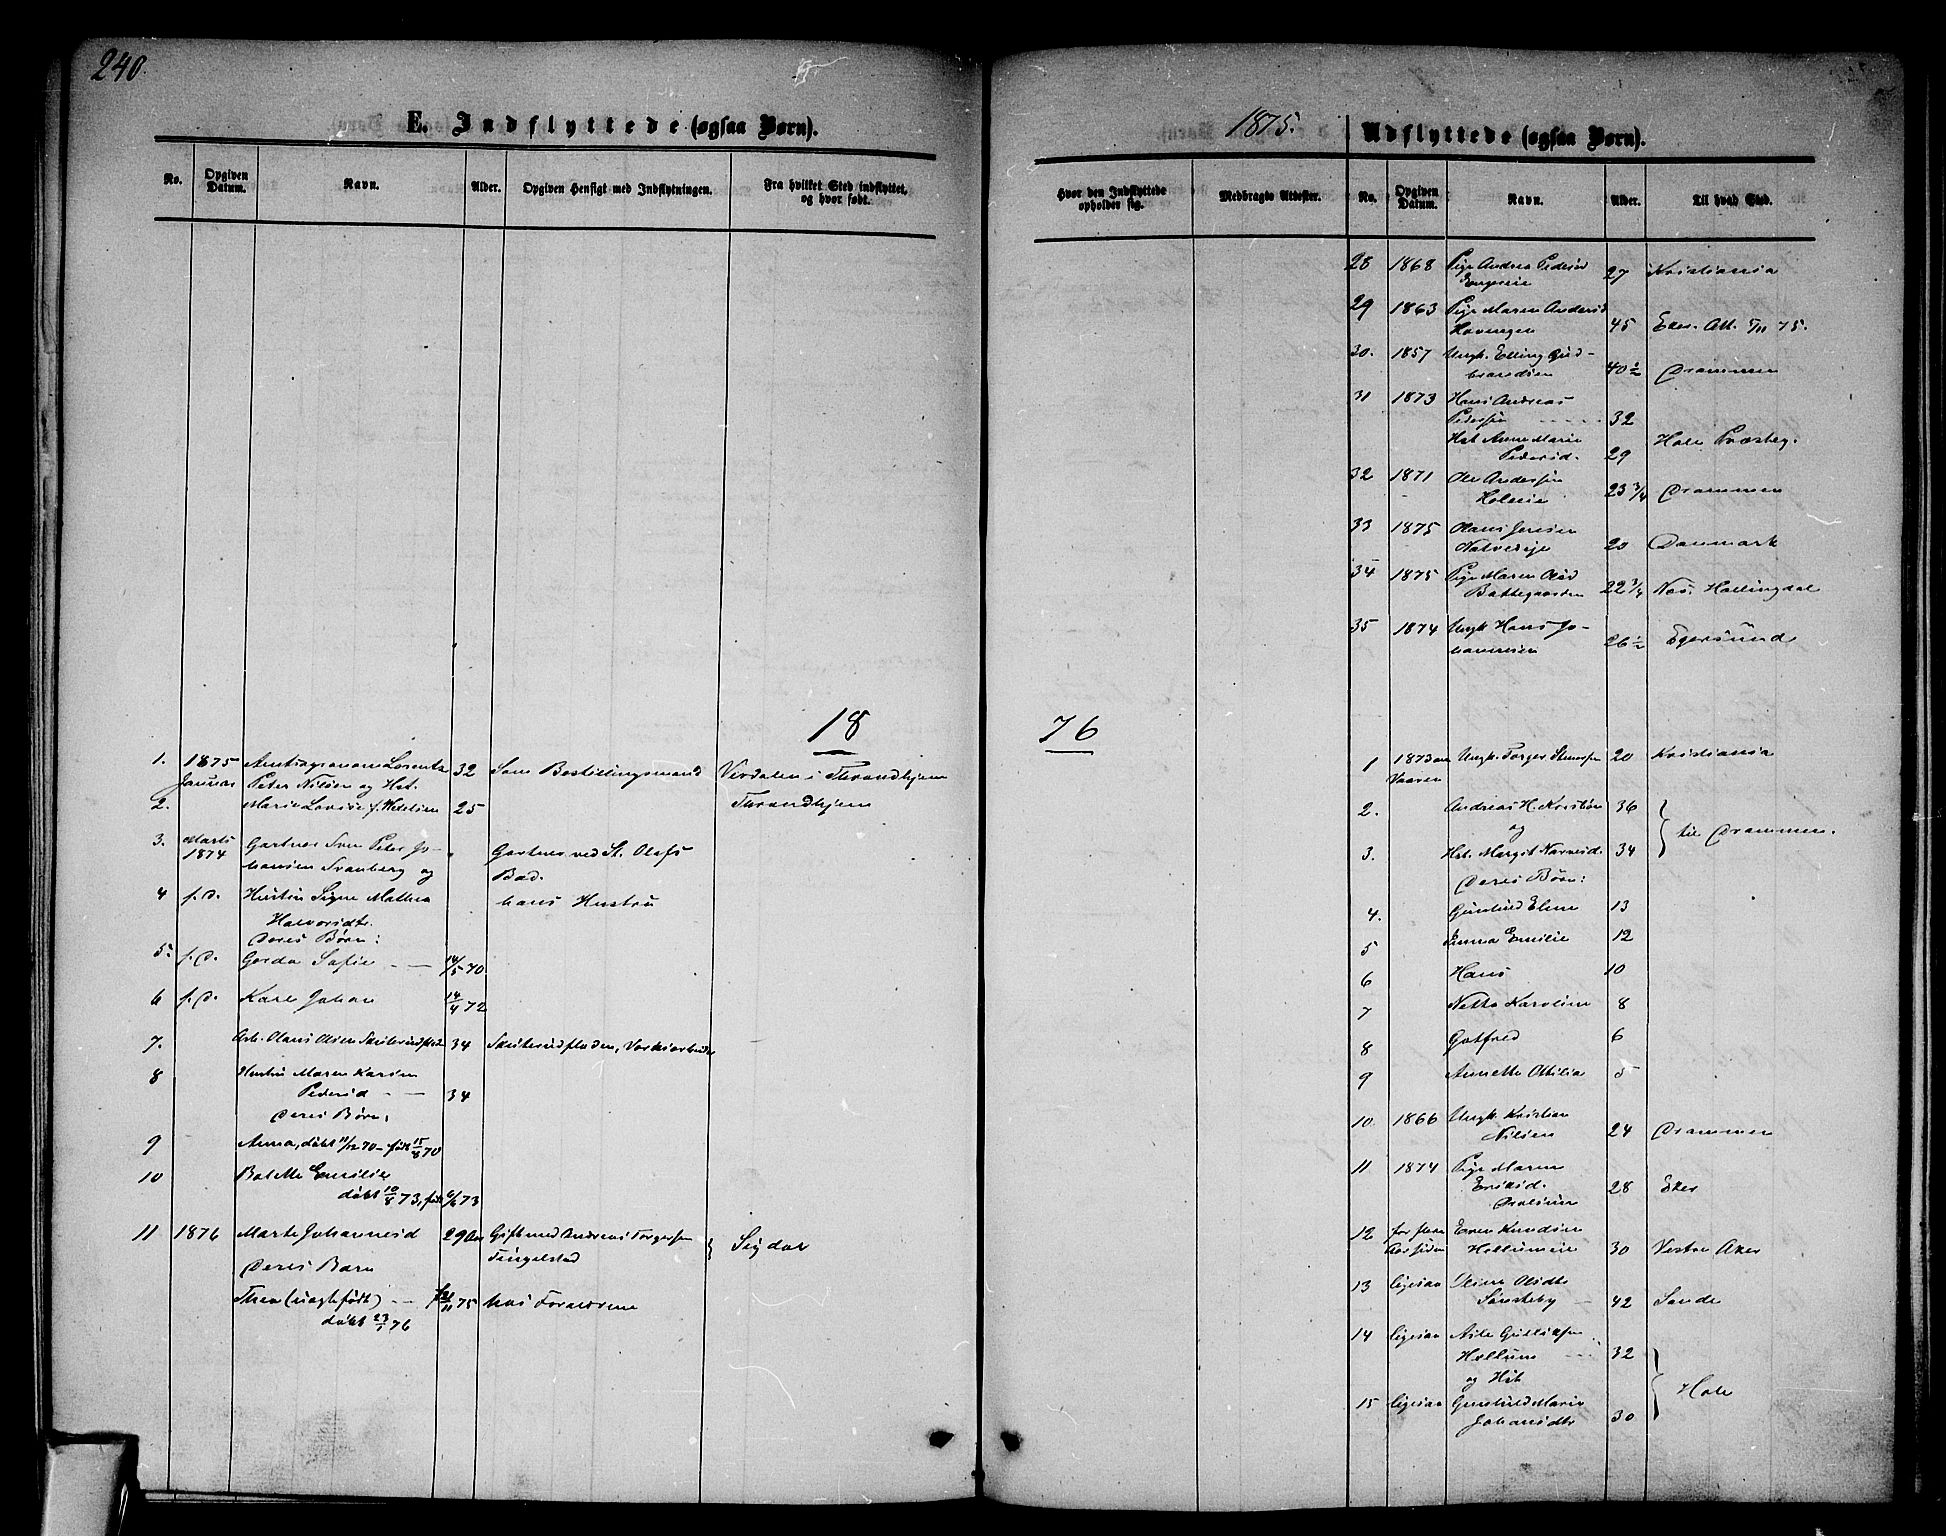 240.
E. Indflyttede (ogsaa Børn).
No. Opgiven Datum. Navn. Alder. Opgiven Hensigt med Indflytningen. Fra hvilket Sted indflyttet, og hvor født.
18
1. 1875 Januar
Peter Nilsen og Hst. 32 Som Bestillingsmand Værdalen i Throndhjem
2. Marie Lovise f. 25 Throndhjem
3. Marts 1874 Gartner Sven Peter Jo-
hansen Svanberg og
Gartner ved St. Olafs
Bad.
4 f. D. Hustru Signe Mathea hans Hustru
Halvorsdtr.
Deres Børn:
5. f. D. Gerda Sofie — 14/5 70
6 f. D. Karl Johan 14/4 72
7. Arb. Hans Olsen 34 Skuterudfladen, Værksarbeider
8 Hustru Maren Karine
Pedersd — 34
Deres Børn:
9 Anna, døbt 11/12 70 – født 15/8 70
10 Bolette Emilie
døbt 10/8 73, født 6/6 73
11 1876 Marte Johannesd 29 Aar Gift med Andreas Torgersen Sigdal
Tingelstad
Deres Barn
Thea (uægte født) — 11 75 hos Forældrene
døbt 23/1 76
1875.
Udflyttede (ogsaa Børn).
Hvor den Indflyttede opholder sig. Medbragte Attester. No. Opgiven Datum. Navn. Alder. Til hvad Sted.
28 1868 Pige Andrea Pedersd
Engereie 27 Kristiania
29 1863 Pige Maren Andersd
Hovengen 45 Eker. Att. 5/11 75.
30. 1857 Ungk. Elling Gud-
brandsen 40½ Drammen
31 1873 Hans Andreas
Pedersen 32
Hst. Anne Marie Hole Præsteg.
Pedersd. 29
32 1871 Ole Andersen
Holeie 23 3/4 Drammen
33 1875 Hans Jensen
20 Danmark
34 1875 Pige Maren Olsd
Battegaarden 22 3/4 Nes. Hallingdal
35 1874 Ungk Hans Jo-
hannesen 26½ Egersund
76
1 1873 om Vaaren Ungk. Torger Stensen 20 Kristiania
2. Andreas H. 36
og til Drammen.
3. Hst. Margit Narvesd. 34
Deres Børn:
4. Gunhild Eline 13
5 Anna Emilie 12
6 Hans 10
7 Netta Karoline 8
8 Gotfred 6
9 Annette Ottilia 5
10. 1866 Ungk. Kristian
Nilsen 24 Drammen
11 1874 Pige Maren
Eriksd.
28 Eker
12 for flere Aar siden Even Knudsen
30 Vestre Aker
13 ligesaa Olsdtr
Sønsteby — 42 Sande
14 ligesaa Asle Gulliksen
32
og Hst. Hole
15 ligesaa Gunhild Marie
Johansdtr 30